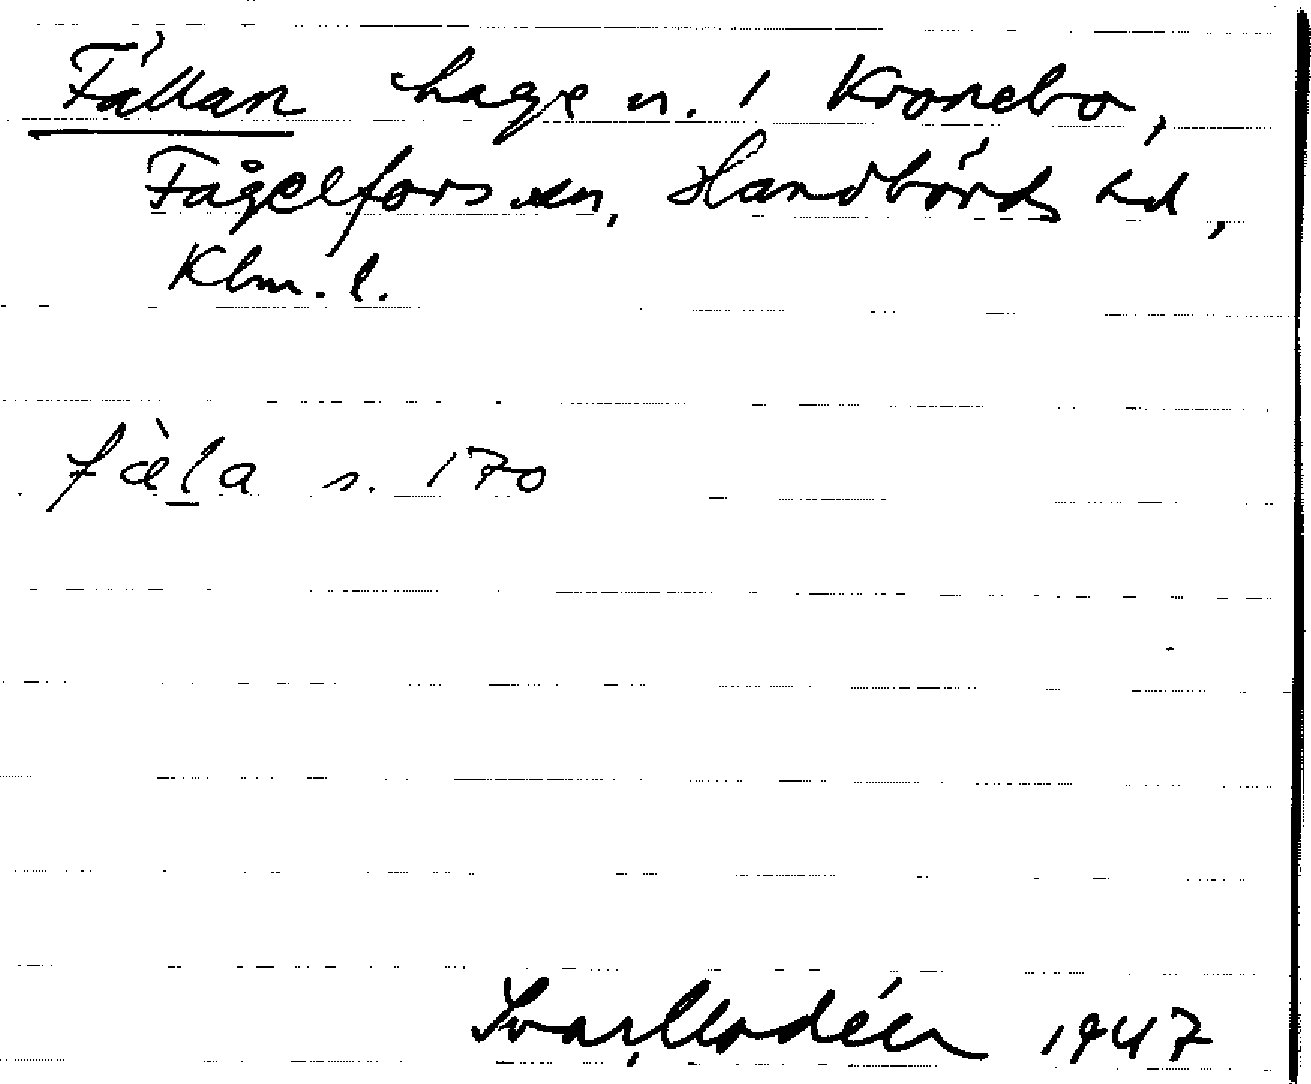 Fällan hage n. 1 Kronebo,
Fågelfors sn, Handbörds hd,
Klm. l.
fàl̲a s. 170
Ivar Modéer 1947